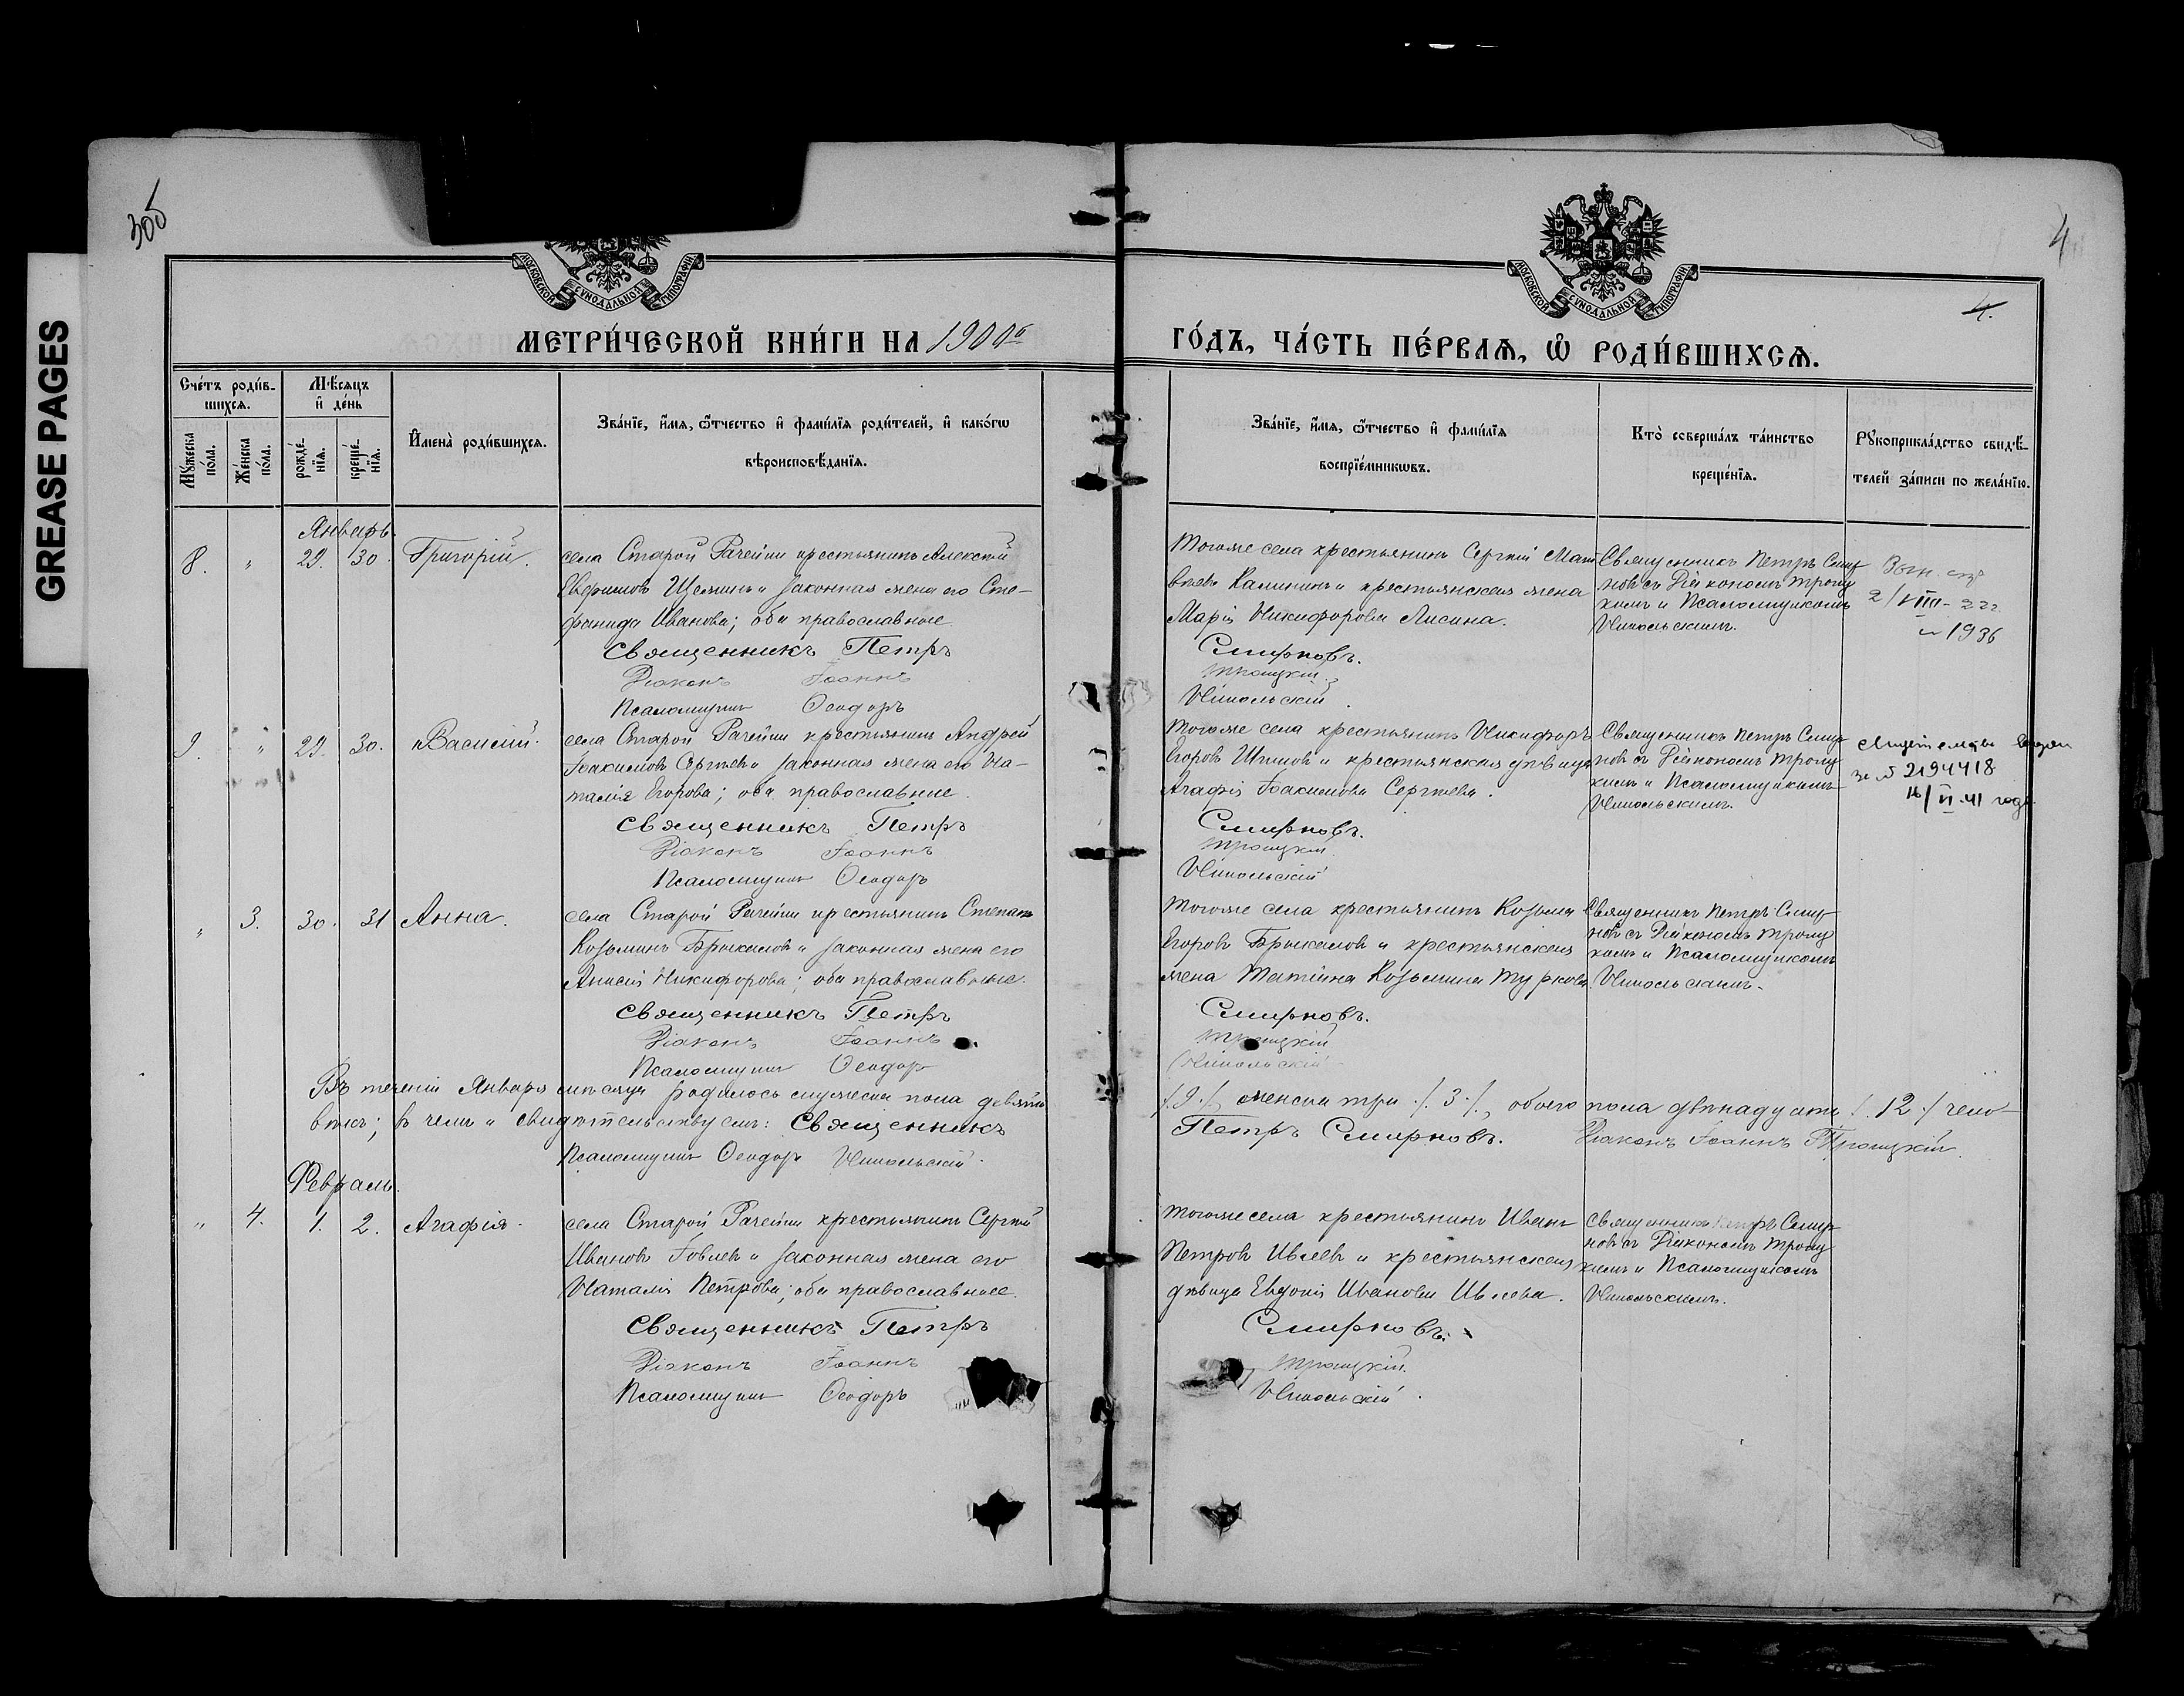 GREASE PAGES
3об
4
4.
МОСКОВСКОЙ СѴНОДАЛЬНОЙ ТИПОГРАФІИ
МОСКОВСКОЙ СѴНОДАЛЬНОЙ ТИПОГРАФІИ
МЕТРИ́ЧЕСКОЙ КНИ́ГИ НА 1900й
ГО́ДЪ, ЧА́СТЬ ПЕ́РВАѦ, Ѽ РОДИ́ВШИХСѦ.
Сче́тъ роди́в-
шихсѧ.
Мꙋжеска по́ла.
Же́нска по́ла.
Мѣ́сѧцъ и҆ де́нь
рожде́нїѧ.
креще́нїѧ.
И҆мена̀ роди́вшихсѧ.
Зва́нїе, и҆́мѧ, ѻ҆́тчество и҆ фами́лїѧ роди́телей, и҆ како́гѡ
вѣроисповѣ́данїѧ.
Зва́нїе, и҆́мѧ, ѻ҆́тчество и҆ фами́лїѧ
воспрїе́мникѡвъ.
Кто̀ соверша́лъ та́инство
креще́нїѧ.
Рꙋкоприкла́дство свидѣ́-
телей за́писи по жела́нїю.
Январь.
8. " 29. 30. Григорій.
села Старой Рачейки крестьянинъ Алексѣй
Евфимовъ Щеминъ и законная жена его Сте-
фанида Иванова; оба православные
Священникъ Петръ
Діаконъ Іоаннъ
Псаломщикъ Ѳеодоръ
Тогоже села крестьянинъ Сергѣй Мат
вѣевъ Калининъ и крестьянская жена
Марія Никифорова Лисина.
Смирновъ.
Троицкій.
Никольскій.
Священникъ Петръ Смир
новъ съ Діакономъ Троиц
кимъ и Псаломщикомъ
Никольскимъ.
2/VIII-22г.
и 1936
9. " 29. 30. Василій.
села Старой Рачейки крестьянинъ Андрей
Іоакимовъ Сергѣевъ и законная жена его На-
талія Егорова; оба православные.
Священникъ Петръ
Діаконъ Іоаннъ
Псаломщикъ Ѳеодоръ
Тогоже села крестьянинъ Никифоръ
Егоровъ и крестьянская дѣвица
Агафія Іоакимова Сергѣева.
Смирновъ.
Троицкій.
Никольскій
Священникъ Петръ Смир
новъ съ Діакономъ Троиц
кимъ и Псаломщикомъ
Никольскимъ.
за № 2194418
16/VI-41 года
" 3. 30. 31 Анна.
села Старой Рачейки крестьянинъ Степанъ
Козьминъ Брыкаловъ и законная жена его
Анисія Никифорова; оба православные.
Священникъ Петръ
Діаконъ Іоаннъ
Псаломщикъ Ѳеодоръ
Тогоже села крестьянинъ Козьма
Егоровъ Брыкаловъ и крестьянская
жена Татіана Козьмина Туркова.
Смирновъ.
Троицкій
Никольскій
Священникъ Петръ Смир
новъ съ Діакономъ Троиц
кимъ и Псаломщикомъ
Никольскимъ.
Въ теченіи Января мѣсяца родилось мужеска пола девять
/.9./, женска три ./.3./., обоего пола двѣнадцать /.12./ чело-
вѣкъ; въ чемъ и свидѣтельствуемъ: Священникъ
Петръ Смирновъ. Діаконъ Іоаннъ Троицкій.
Псаломщикъ Ѳеодоръ Никольскій.
Февраль.
" 4. 1. 2. Агафія.
села Старой Рачейки крестьянинъ Сергѣй
Ивановъ Іовлевъ и законная жена его
Наталія Петрова; оба православные.
Священникъ Петръ
Діаконъ Іоаннъ
Псаломщикъ Ѳеодоръ
Тогоже села крестьянинъ Иванъ
Петровъ Ивлевъ и крестьянская
дѣвица Евдокія Иванова Ивлева.
Смирновъ.
Троицкій.
Никольскій.
Священникъ Петръ Смир
новъ съ Діакономъ Троиц
кимъ и Псаломщикомъ
Никольскимъ.